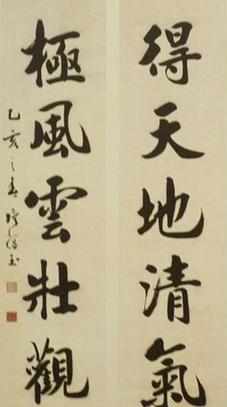 得天地清氣
極風雲壯觀
乙亥之春